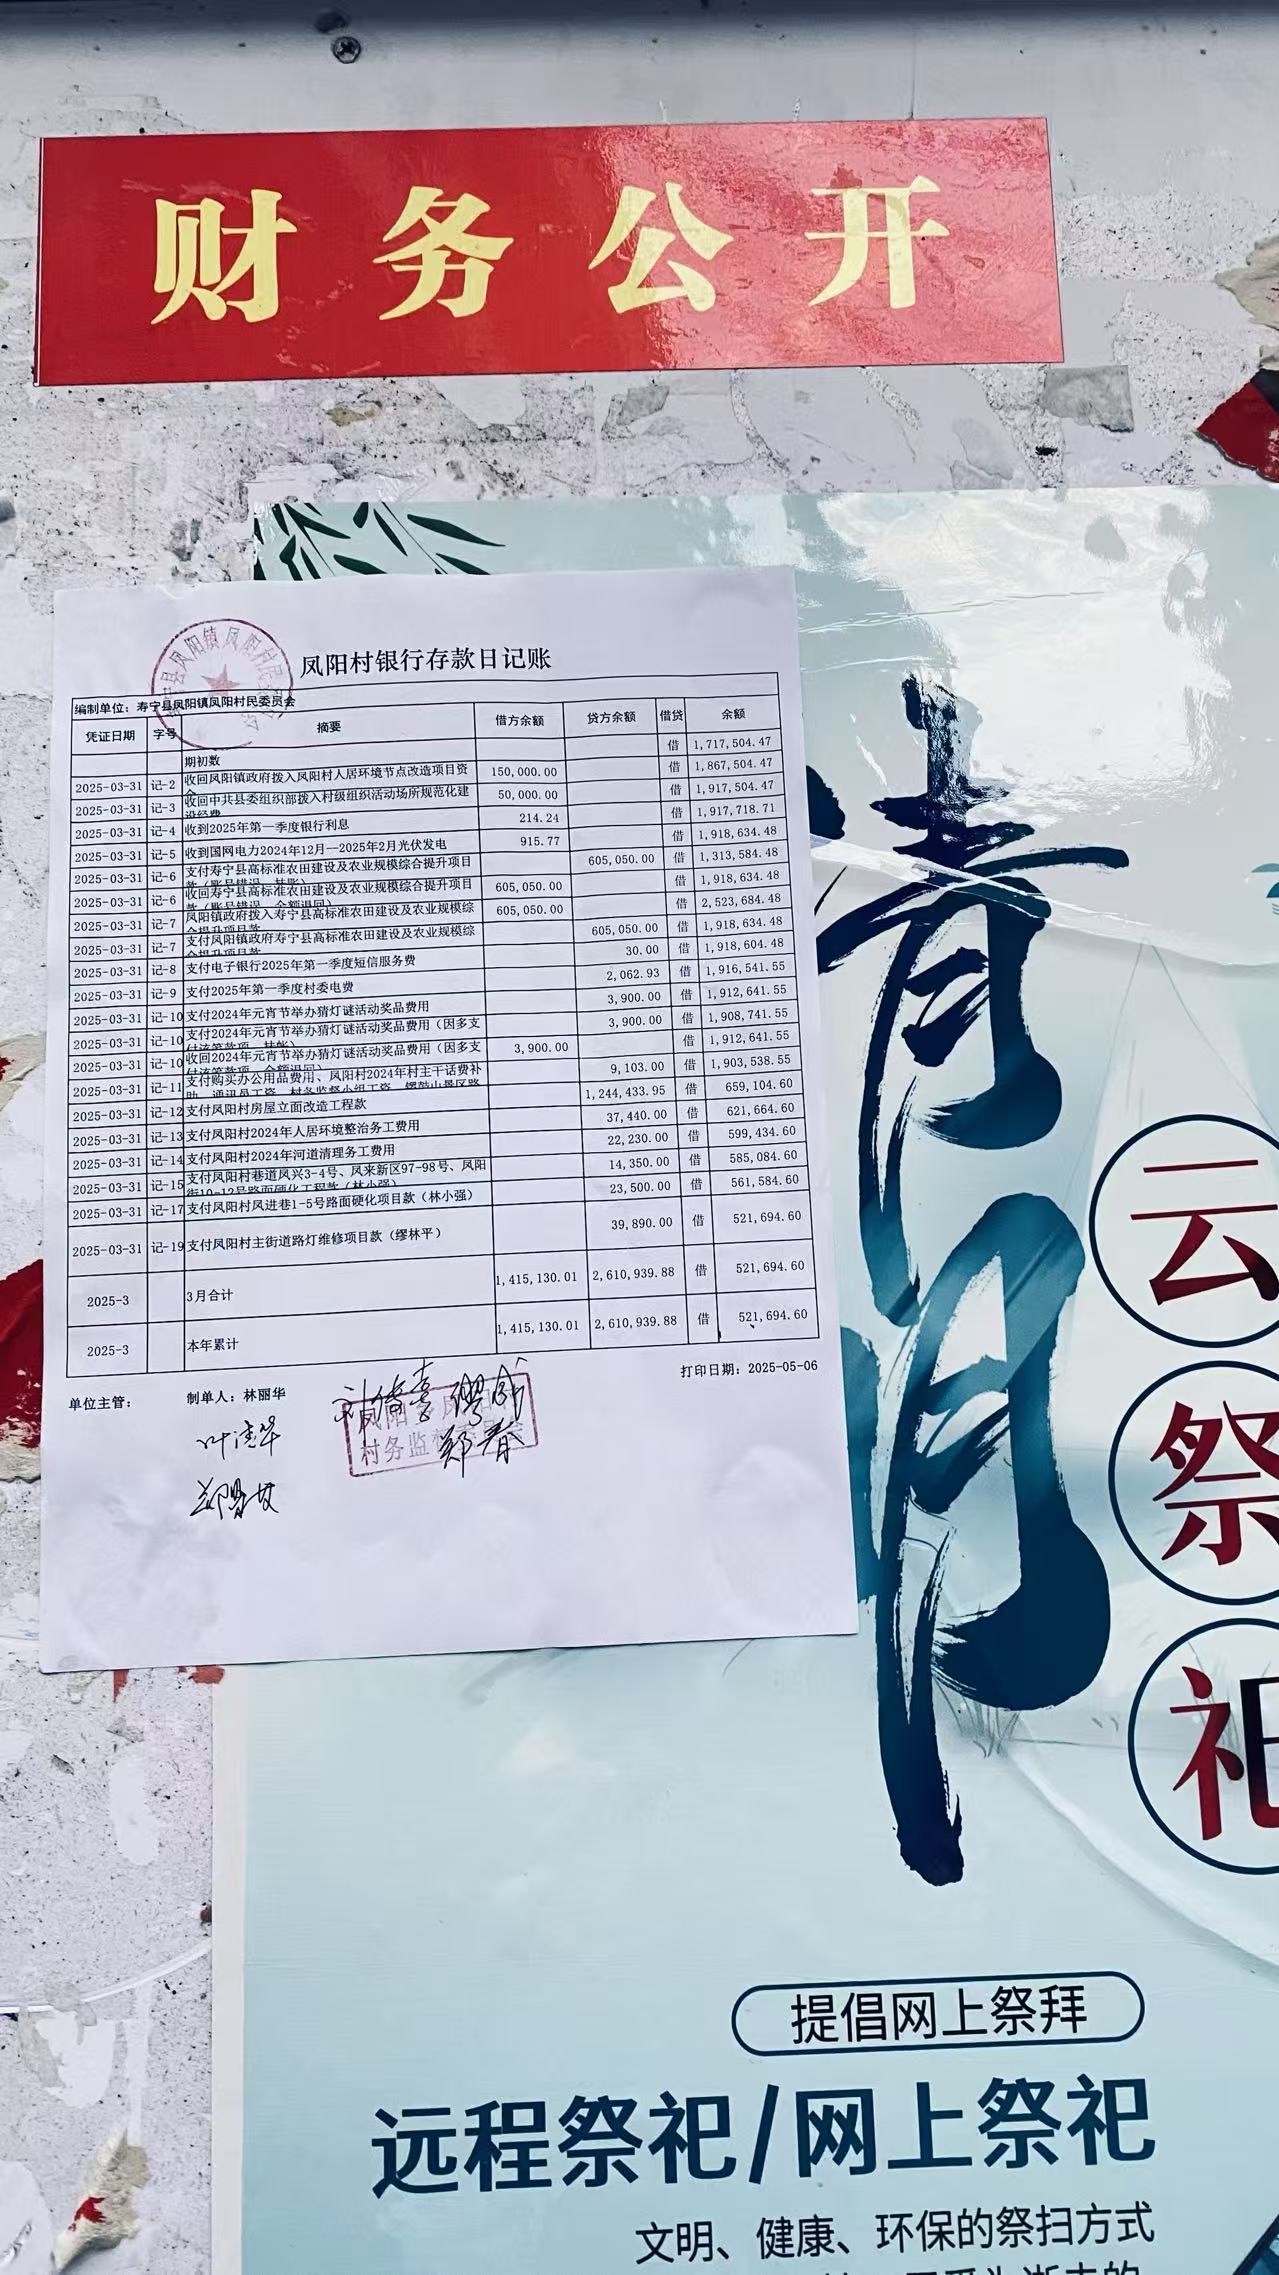 财务公开
凤阳村银行存款日记账
编制单位：寿宁县凤阳镇凤阳村民委员会
凭证日期 字号 摘要 借方余额 贷方余额 借贷 余额
期初数 借 1,717,504.47
2025-03-31 记-2 收回凤阳镇政府拨入凤阳村人居环境节点改造项目资 150,000.00 借 1,867,504.47
2025-03-31 记-3 收回中共县委组织部拨入村级组织活动场所规范化建设经费 50,000.00 借 1,917,504.47
2025-03-31 记-4 收到2025年第一季度银行利息 214.24 借 1,917,718.71
2025-03-31 记-5 收到国网电力2024年12月—2025年2月光伏发电 915.77 借 1,918,634.48
2025-03-31 记-6 支付寿宁县高标准农田建设及农业规模综合提升项目 605,050.00 借 1,313,584.48
2025-03-31 记-6 收回寿宁县高标准农田建设及农业规模综合提升项目 605,050.00 借 1,918,634.48
2025-03-31 记-7 凤阳镇政府拨入寿宁县高标准农田建设及农业规模综合提升项目款 605,050.00 借 2,523,684.48
2025-03-31 记-7 支付凤阳镇政府寿宁县高标准农田建设及农业规模综合提升项目款 605,050.00 借 1,918,634.48
2025-03-31 记-8 支付电子银行2025年第一季度短信服务费 30.00 借 1,918,604.48
2025-03-31 记-9 支付2025年第一季度村委电费 2,062.93 借 1,916,541.55
2025-03-31 记-10 支付2024年元宵节举办猜灯谜活动奖品费用 3,900.00 借 1,912,641.55
2025-03-31 记-10 支付2024年元宵节举办猜灯谜活动奖品费用（因多支 3,900.00 借 1,908,741.55
2025-03-31 记-10 收回2024年元宵节举办猜灯谜活动奖品费用（因多支 3,900.00 借 1,912,641.55
2025-03-31 记-11 支付购买办公用品费用、凤阳村2024年村主干话费补 9,103.00 借 1,903,538.55
2025-03-31 记-12 支付凤阳村房屋立面改造工程款 1,244,433.95 借 659,104.60
2025-03-31 记-13 支付凤阳村2024年人居环境整治务工费用 37,440.00 借 621,664.60
2025-03-31 记-14 支付凤阳村2024年河道清理务工费用 22,230.00 借 599,434.60
2025-03-31 记-15 支付凤阳村巷道凤兴3-4号、凤来新区97-98号、凤阳街10-12号路面硬化工程款（林小强） 14,350.00 借 585,084.60
2025-03-31 记-17 支付凤阳村凤进巷1-5号路面硬化项目款（林小强） 23,500.00 借 561,584.60
2025-03-31 记-19 支付凤阳村主街道路灯维修项目款（缪林平） 39,890.00 借 521,694.60
2025-3 3月合计 1,415,130.01 2,610,939.88 借 521,694.60
2025-3 本年累计 1,415,130.01 2,610,939.88 借 521,694.60
打印日期：2025-05-06
单位主管： 制单人：林丽华
叶清华
郑春
清明
云祭祀
提倡网上祭拜
远程祭祀/网上祭祀
文明、健康、环保的祭扫方式